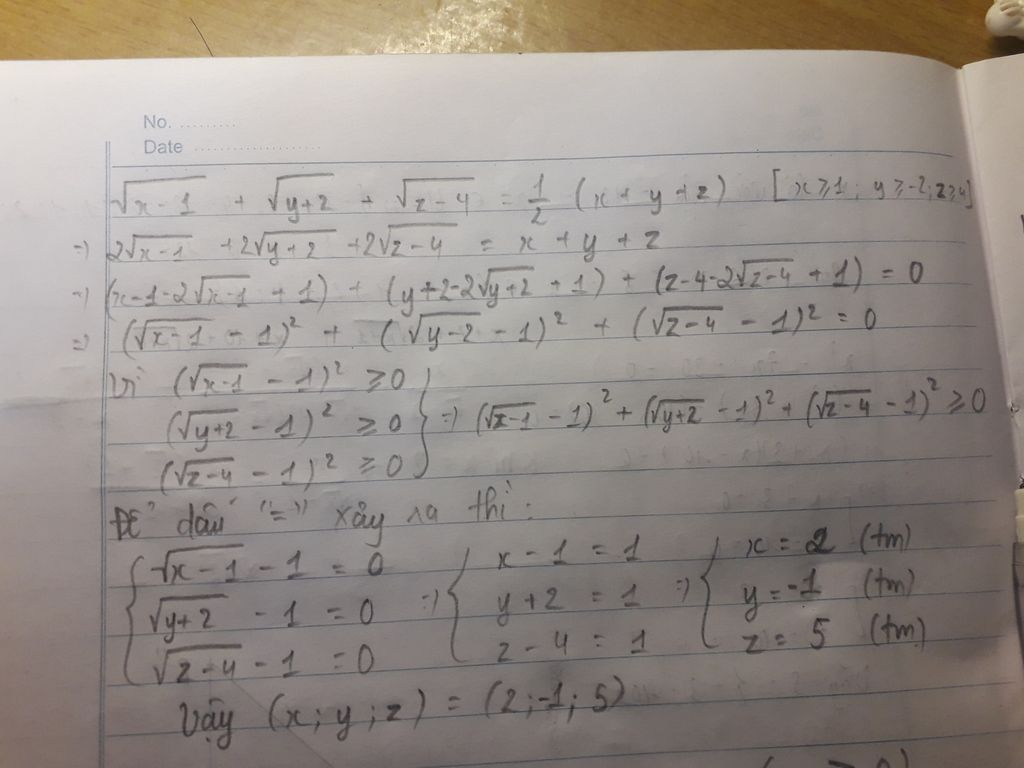 No. .........
Date ...................
√(x-1) + √(y+2) + √(z-4) = 1/2 (x + y + z) [x ≥ 1; y ≥ -2; z ≥ 4]
=) 2√(x-1) + 2√(y+2) + 2√(z-4) = x + y + z
=) (x-1-2√(x-1) + 1) + (y+2-2√(y+2) + 1) + (z-4-2√(z-4) + 1) = 0
=) (√(x-1) - 1)² + (√(y-2) - 1)² + (√(z-4) - 1)² = 0
Vì (√(x-1) - 1)² ≥ 0
(√(y+2) - 1)² ≥ 0 } =) (√(x-1) - 1)² + (√(y+2) - 1)² + (√(z-4) - 1)² ≥ 0
(√(z-4) - 1)² ≥ 0
Để dấu "=" xảy ra thì:
{ √(x-1) - 1 = 0 { x - 1 = 1 { x = 2 (tm)
√(y+2) - 1 = 0 =) y + 2 = 1 =) y = -1 (tm)
√(z-4) - 1 = 0 z - 4 = 1 z = 5 (tm)
Vậy (x; y; z) = (2; -1; 5)